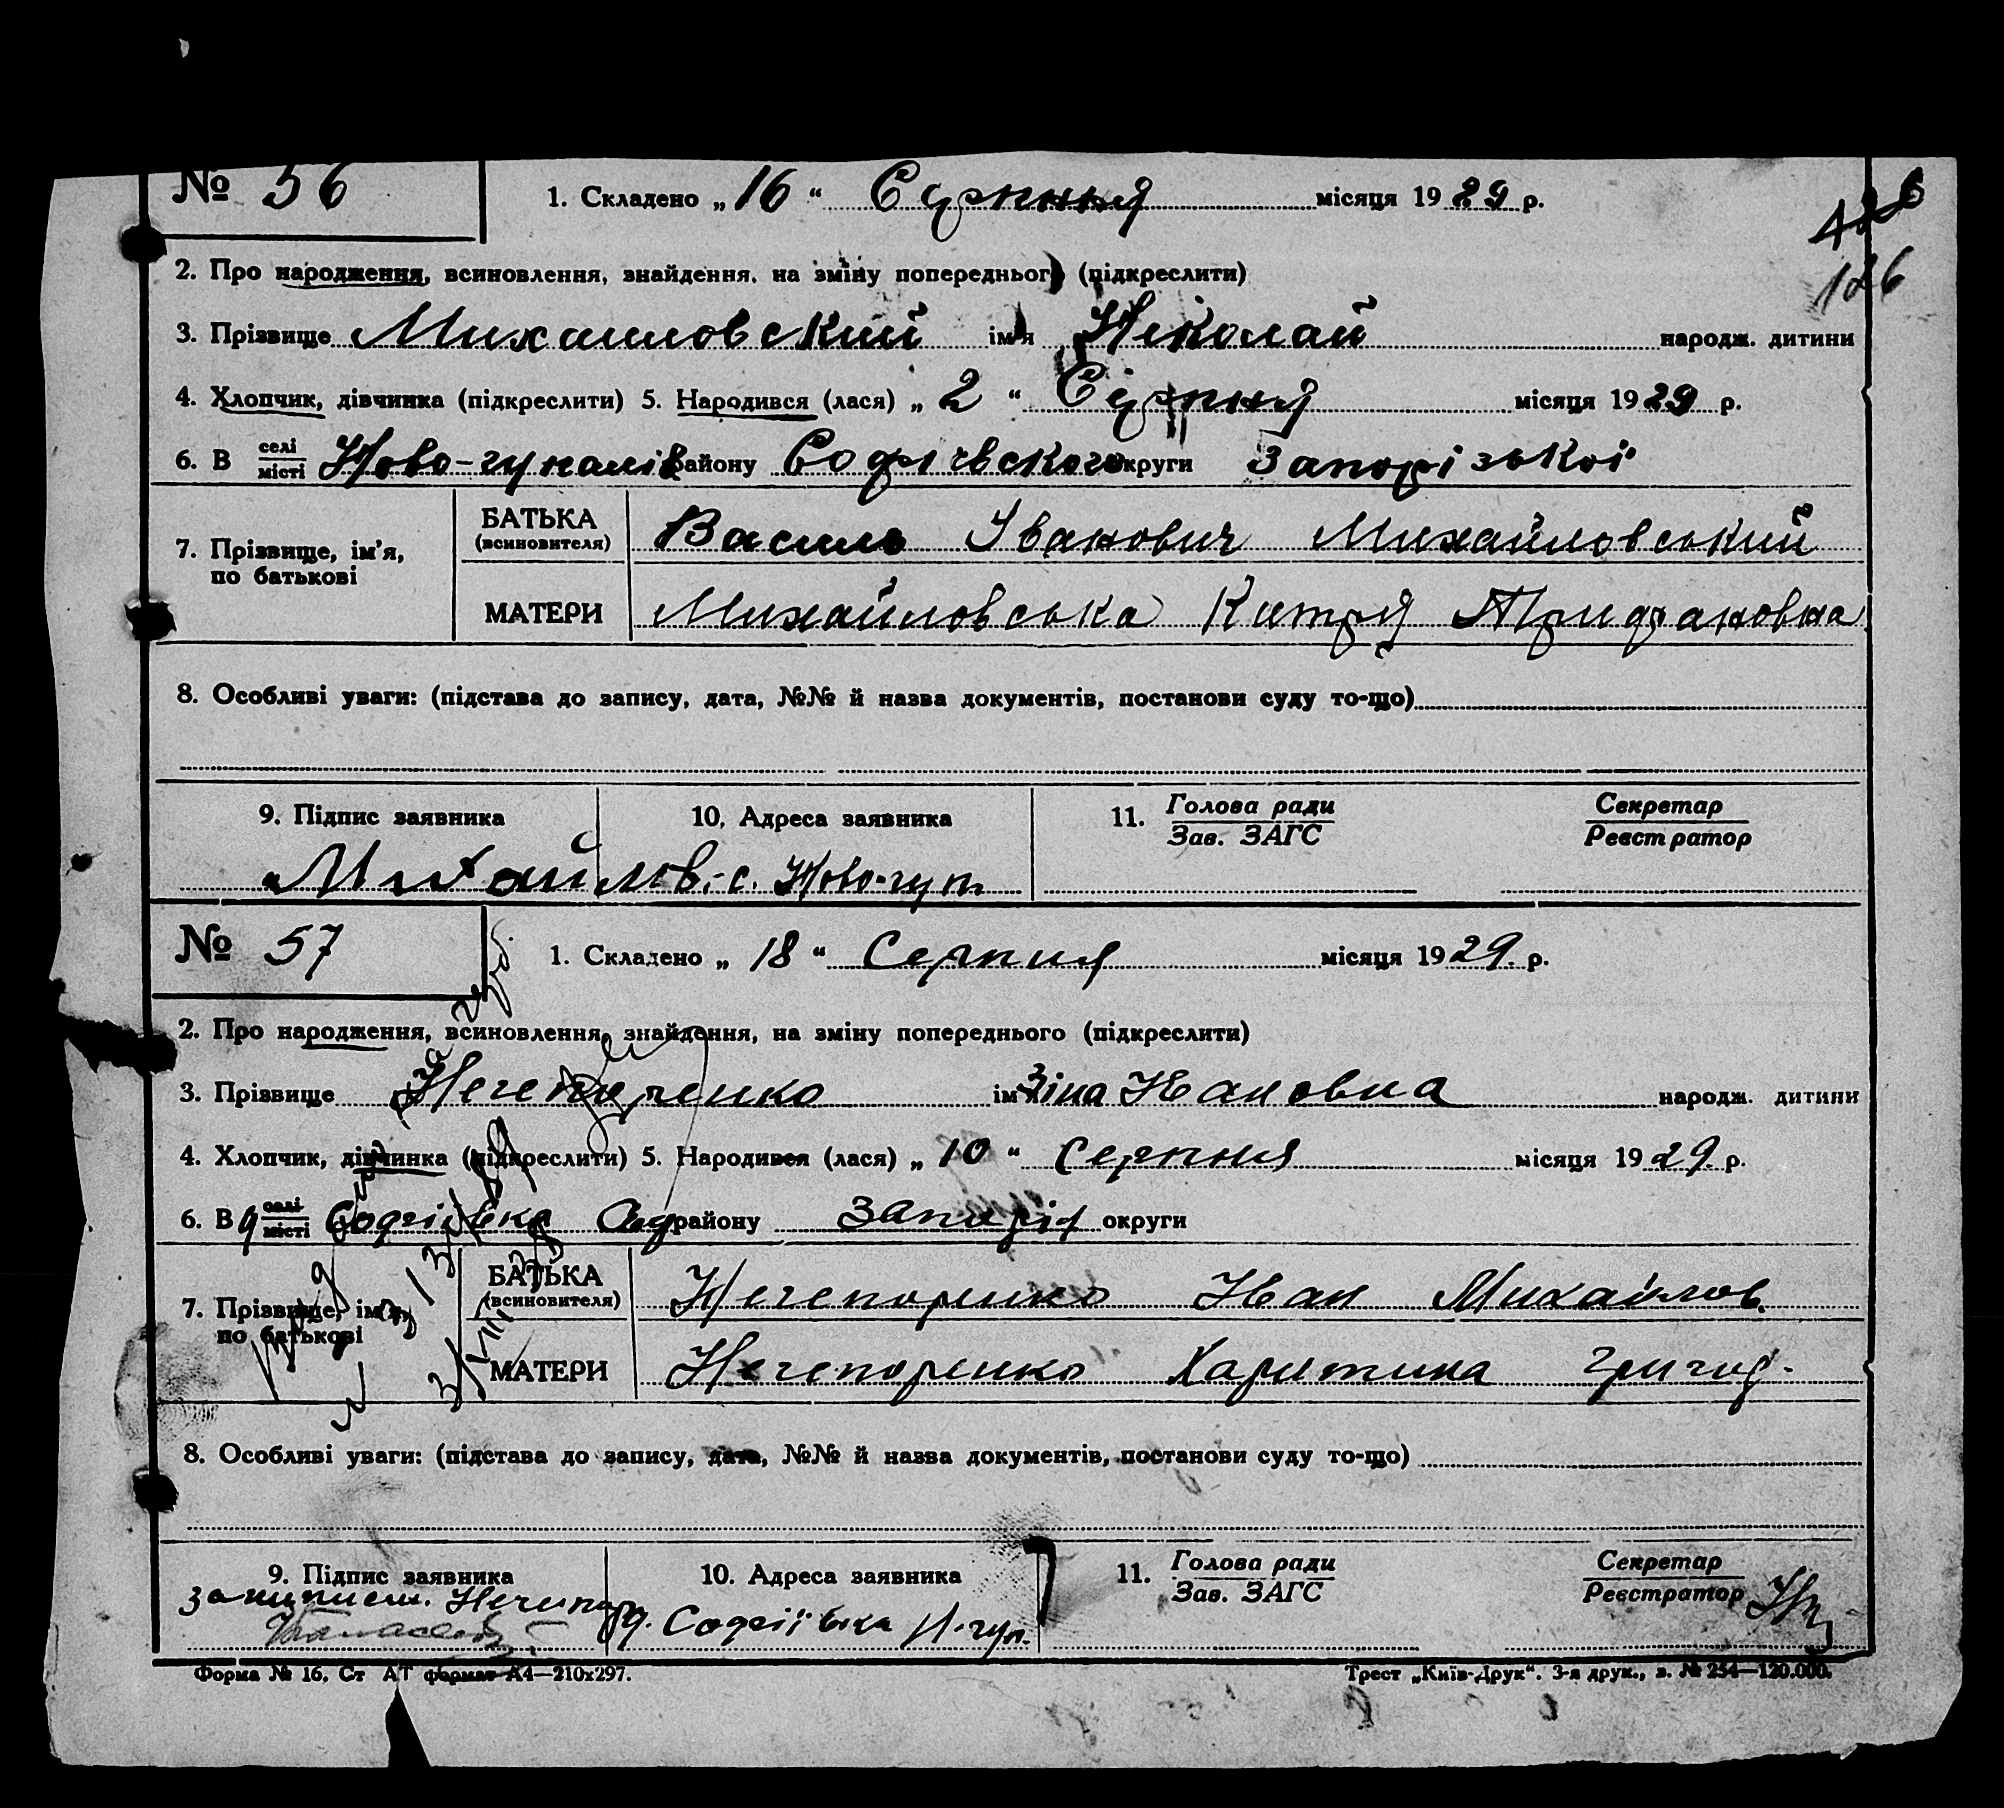 № 56 1. Складено „16“ Серпня місяця 1929 р.
126
2. Про народження, всиновлення, знайдення, на зміну попереднього (підкреслити)
3. Прізвище Михаиловский ім'я Ніколай народж. дитини
4. Хлопчик, дівчинка (підкреслити) 5. Народився (лася) „2“ Серпня місяця 1929 р.
6. В селі місті району Софіевского округи Запорізькоі
7. Прізвище, ім'я, по батькові
БАТЬКА (всиновителя) Василь Іванович Михайловський
МАТЕРИ Михайловська Катря
8. Особливі уваги: (підстава до запису, дата, №№ й назва документів, постанови суду то-що)
9. Підпис заявника 10. Адреса заявника 11. Голова ради Зав. ЗАГС Секретар Реєстратор
Михайлов.- с. Ново-гуп
№ 57 1. Складено „18“ Серпня місяця 1929. р.
2. Про народження, всиновлення, знайдення, на зміну попереднього (підкреслити)
3. Прізвище ім'я Зіна Ивановна народж. дитини
4. Хлопчик, дівчинка (підкреслити) 5. Народився (лася) „10“ Серпня місяця 1929. р.
6. В селі місті Софіївка району Запоріз округи
7. Прізвище, ім'я, по батькові
БАТЬКА (всиновителя) Нечепоренко Иван Михайлов.
МАТЕРИ Нечепоренко Харитина Григор.
8. Особливі уваги: (підстава до запису, дата, №№ й назва документів, постанови суду то-що)
9. Підпис заявника 10. Адреса заявника 11. Голова ради Зав. ЗАГС Секретар Реєстратор
Софіївка Н-гуп.
Форма № 16, Ст АТ формат А4—210х297. Трест „Київ-Друк“. 3-я друк., з. № 254—120.000.